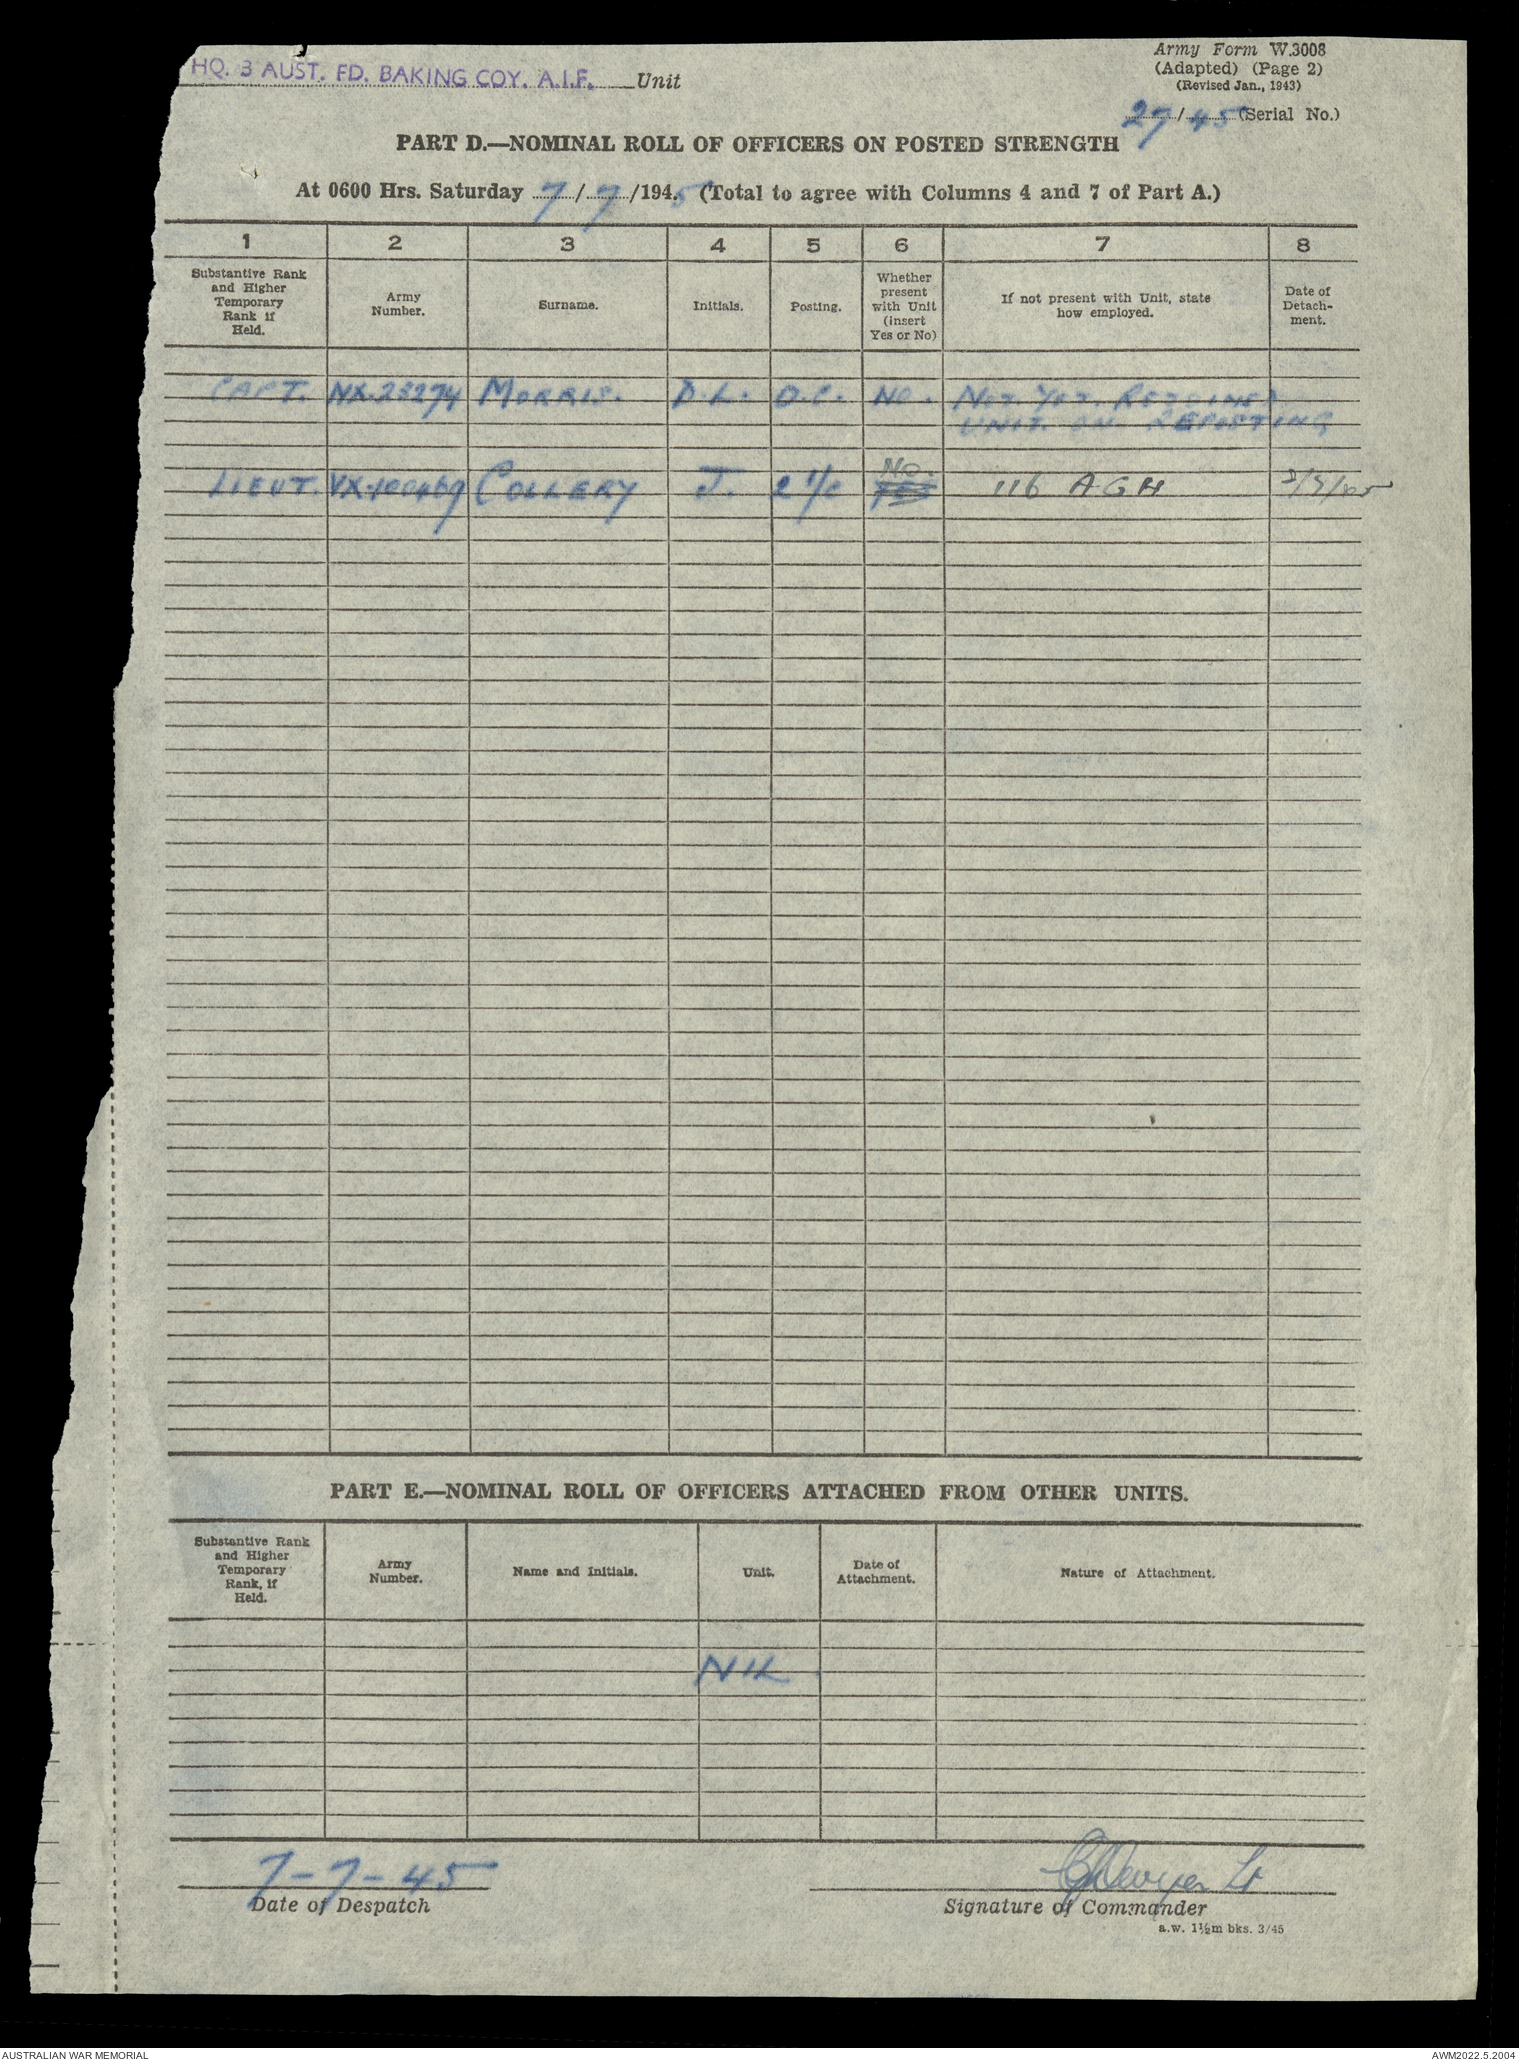 HQ. 3 AUST. FD. BAKING COY. A.I.F. Unit
Army Form W.3008
(Adapted) (Page 2)
(Revised Jan., 1943)
27/45 (Serial No.)
PART D.—NOMINAL ROLL OF OFFICERS ON POSTED STRENGTH
At 0600 Hrs. Saturday 7/7/1945 (Total to agree with Columns 4 and 7 of Part A.)
1 2 3 4 5 6 7 8
Substantive Rank and Higher Temporary Rank if Held.
Army Number.
Surname.
Initials.
Posting.
Whether present with Unit (insert Yes or No)
If not present with Unit, state how employed.
Date of Detach-ment.
CAPT. NX.23274 MORRIS. D.L. O.C. NO. NOT YET REJOINED
UNIT ON REPOSTING
NO.
LIEUT. VX.100469 COLLERY J. 2 I/C YES 116 AGH
PART E.—NOMINAL ROLL OF OFFICERS ATTACHED FROM OTHER UNITS.
Substantive Rank and Higher Temporary Rank, if Held.
Army Number.
Name and Initials.
Unit.
Date of Attachment.
Nature of Attachment.
NIL
7-7-45
Lt
Date of Despatch
Signature of Commander
a.w. 1½m bks. 3/45
AUSTRALIAN WAR MEMORIAL
AWM2022.5.2004